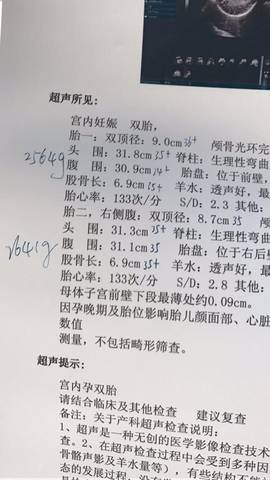 超声所见:
宫内妊娠 双胎,
胎一: 双顶径: 9.0cm 36+ 颅骨光环完
头 围: 31.8cm 35+ 脊柱: 生理性弯曲
2564g
腹 围: 30.9cm 34+ 胎盘: 位于前壁,
股骨长: 6.9cm 35+ 羊水: 透声好, 最
胎心率: 133次/分 S/D: 2.3 其他:
胎二, 右侧腹: 双顶径: 8.7cm 35 颅
头 围: 31.3cm 35+ 脊柱: 生理性弯曲
2641g
腹 围: 31.1cm 35 胎盘: 位于右后壁
股骨长: 6.9cm 35+ 羊水: 透声好, 最
胎心率: 133次/分 S/D: 2.8 其他:
母体子宫前壁下段最薄处约0.09cm。
因孕晚期及胎位影响胎儿颜面部、心脏
数值
测量, 不包括畸形筛查。
超声提示:
宫内孕双胎
请结合临床及其他检查 建议复查
备注: 关于产科超声检查说明:
1、超声是一种无创的医学影像检查技术
查。2、在超声检查过程中会受到多种因
骨骼声影及羊水量等), 有些结构不能
态的发展过程,